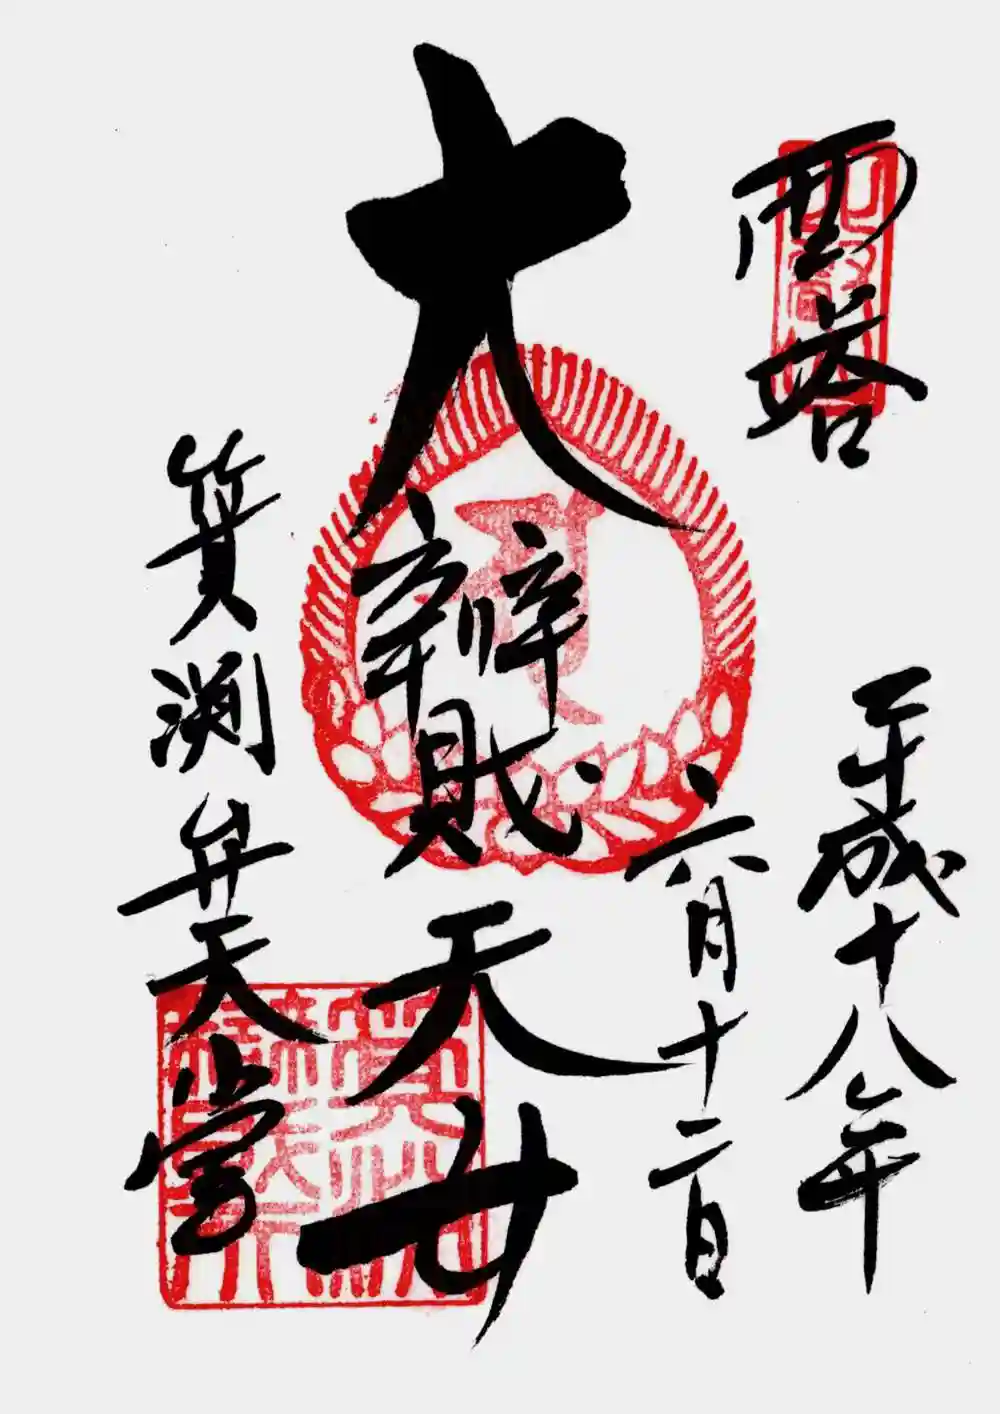 西塔
平成十八年
六月十二日
大辨財天女
箕淵弁天堂